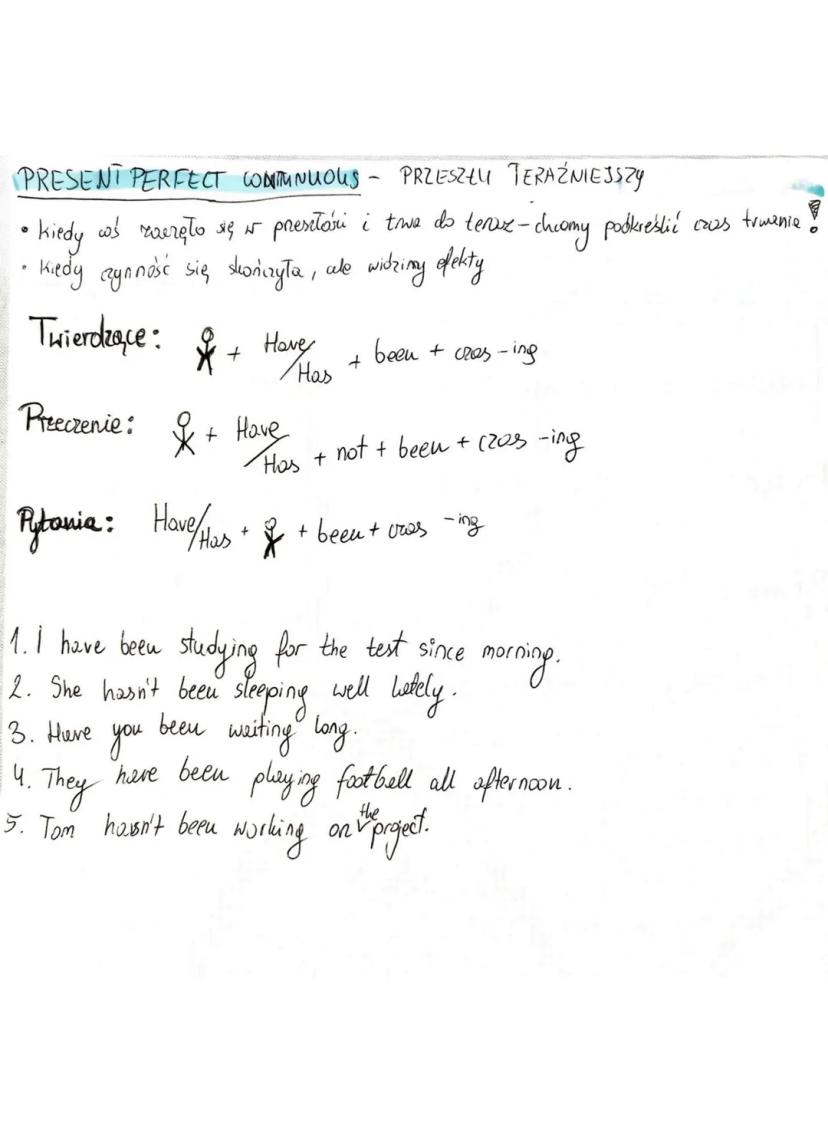 PRESENT PERFECT CONTINUOUS - PRZESZŁU TERAŹNIEJSZY
• kiedy coś zaczęło się w przeszłości i trwa do teraz - chcemy podkreślić czas trwania!
• kiedy czynność się skończyła, ale widzimy efekty
Twierdzące: + Have/Has + been + czas -ing
Przeczenie: + Have/Has + not + been + czas -ing
Pytania: Have/Has + + been + czas -ing
1. I have been studying for the test since morning.
2. She hasn't been sleeping well lately.
3. Have you been waiting long.
4. They have been playing football all afternoon.
5. Tom hasn't been working on the project.